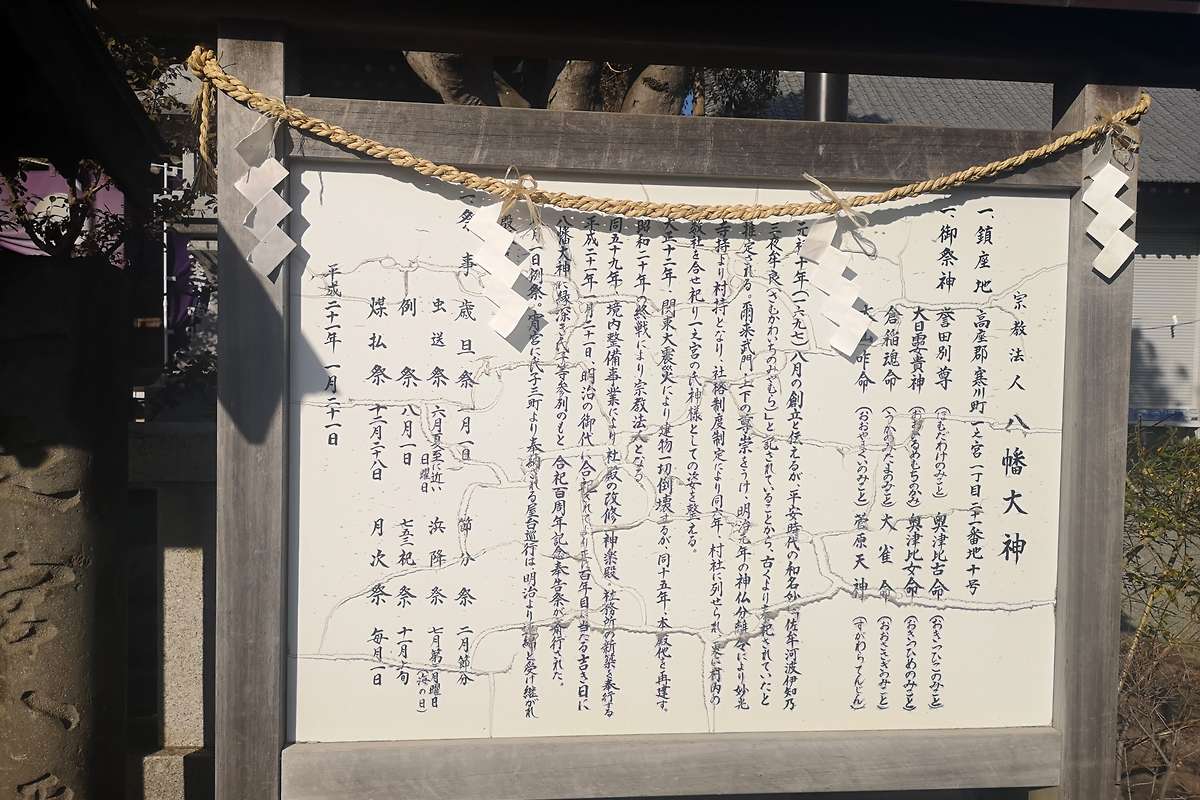 宗教法人 八幡大神
一、鎮座地 高座郡寒川町一之宮一丁目二十一番地十号
一、御祭神 誉田別尊 (ほもだわけのみこと) 奥津比古命 (おきつひこのみこと)
大日孁女貴神 (おおひるめむちのかみ) 奥津比女命 (おきつひめのみこと)
倉稲魂命 (うかのみたまのみこと) 大雀命 (おおささぎのみこと)
大山咋命 (おおやまくいのみこと) 菅原天神 (すがわらてんじん)
元禄十年(一六九七)八月の創立と伝えるが、平安時代の和名抄に佐牟河波伊知乃
三夜牟良(さむかわいちのみやむら)」と記されていることから、古くより奉祀されていたと
推定される。爾来武門、上下の尊崇をうけ、明治元年の神仏分離令により妙光
寺持より村持となり、社格制度制定により同六年、村社に列せられ、更に村内の
数社を合せ祀り一之宮の氏神様としての姿を整える。
大正十二年、関東大震災により建物一切倒壊するが、同十五年、本殿他を再建す。
昭和二十年の終戦により宗教法人となる
同五十九年、境内整備事業により社殿の改修、神楽殿、社務所の新築を奉行する
平成二十一年一月二十一日、明治の御代に合祀されてより正に百年目に当たる吉き日に
八幡大神に縁深き氏子等参列のもと、合祀百周年記念奉告祭が斎行された。
月一日例祭。宵宮に氏子三町より奉納される屋台巡行は、明治より連綿と受け継がれ
一、祭事 歳旦祭 一月一日 節分祭 二月節分
虫送祭 六月夏至に近い日曜日 浜降祭 七月第三月曜日(海の日)
例祭 八月一日 七五三祀祭 十一月上旬
煤払祭 十二月二十八日 月次祭 毎月一日
平成二十一年一月二十一日